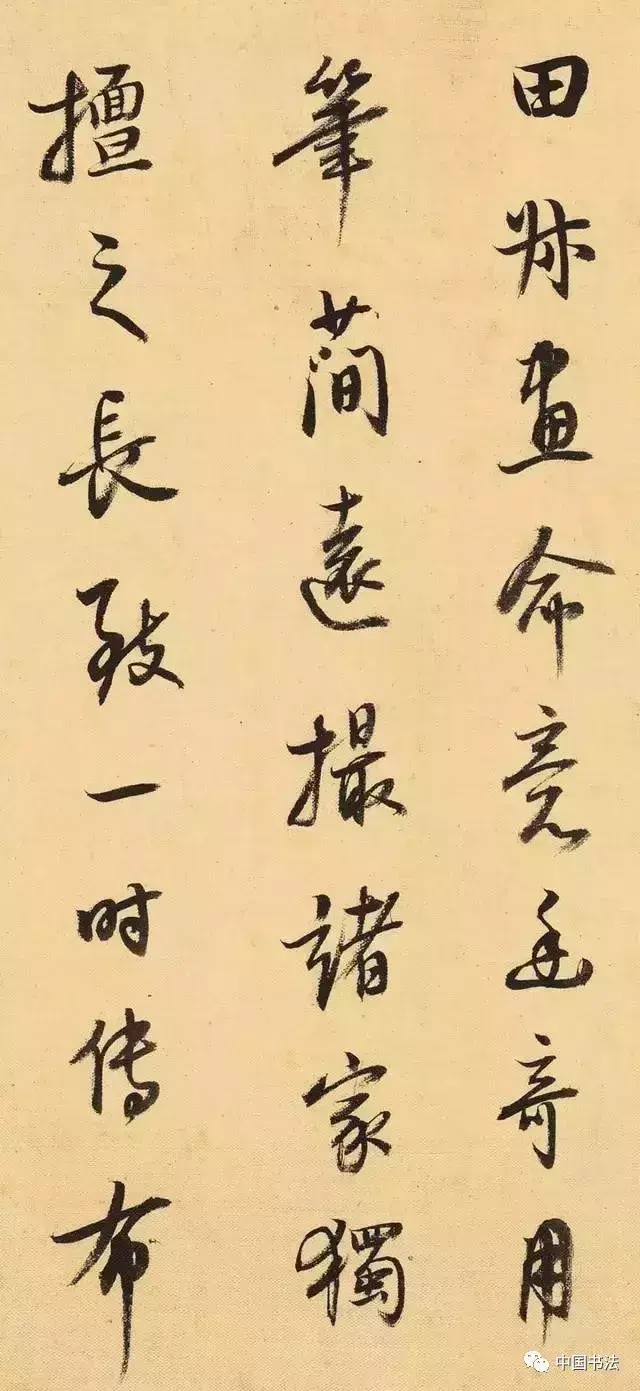 田叔畫命奇用
筆蕳遠撮諸家獨
擅之長致一时傳布
中国书法